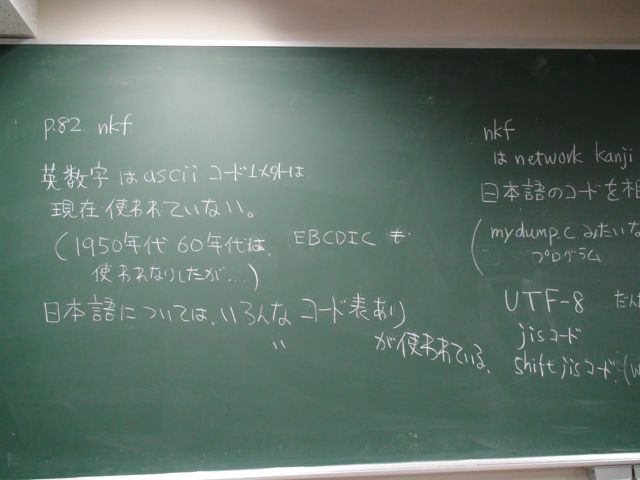 p.82 nkf
英数字はasciiコード以外は
現在使われていない。
(1950年代60年代は、EBCDICも
使われたりしたが…)
日本語については、いろんなコード表あり
が使われている、
nkf
はnetwork kanji
日本語のコードを相
(mydump.cみたいな
プログラム
UTF-8 だんだ
jisコード
shift jisコード、(w